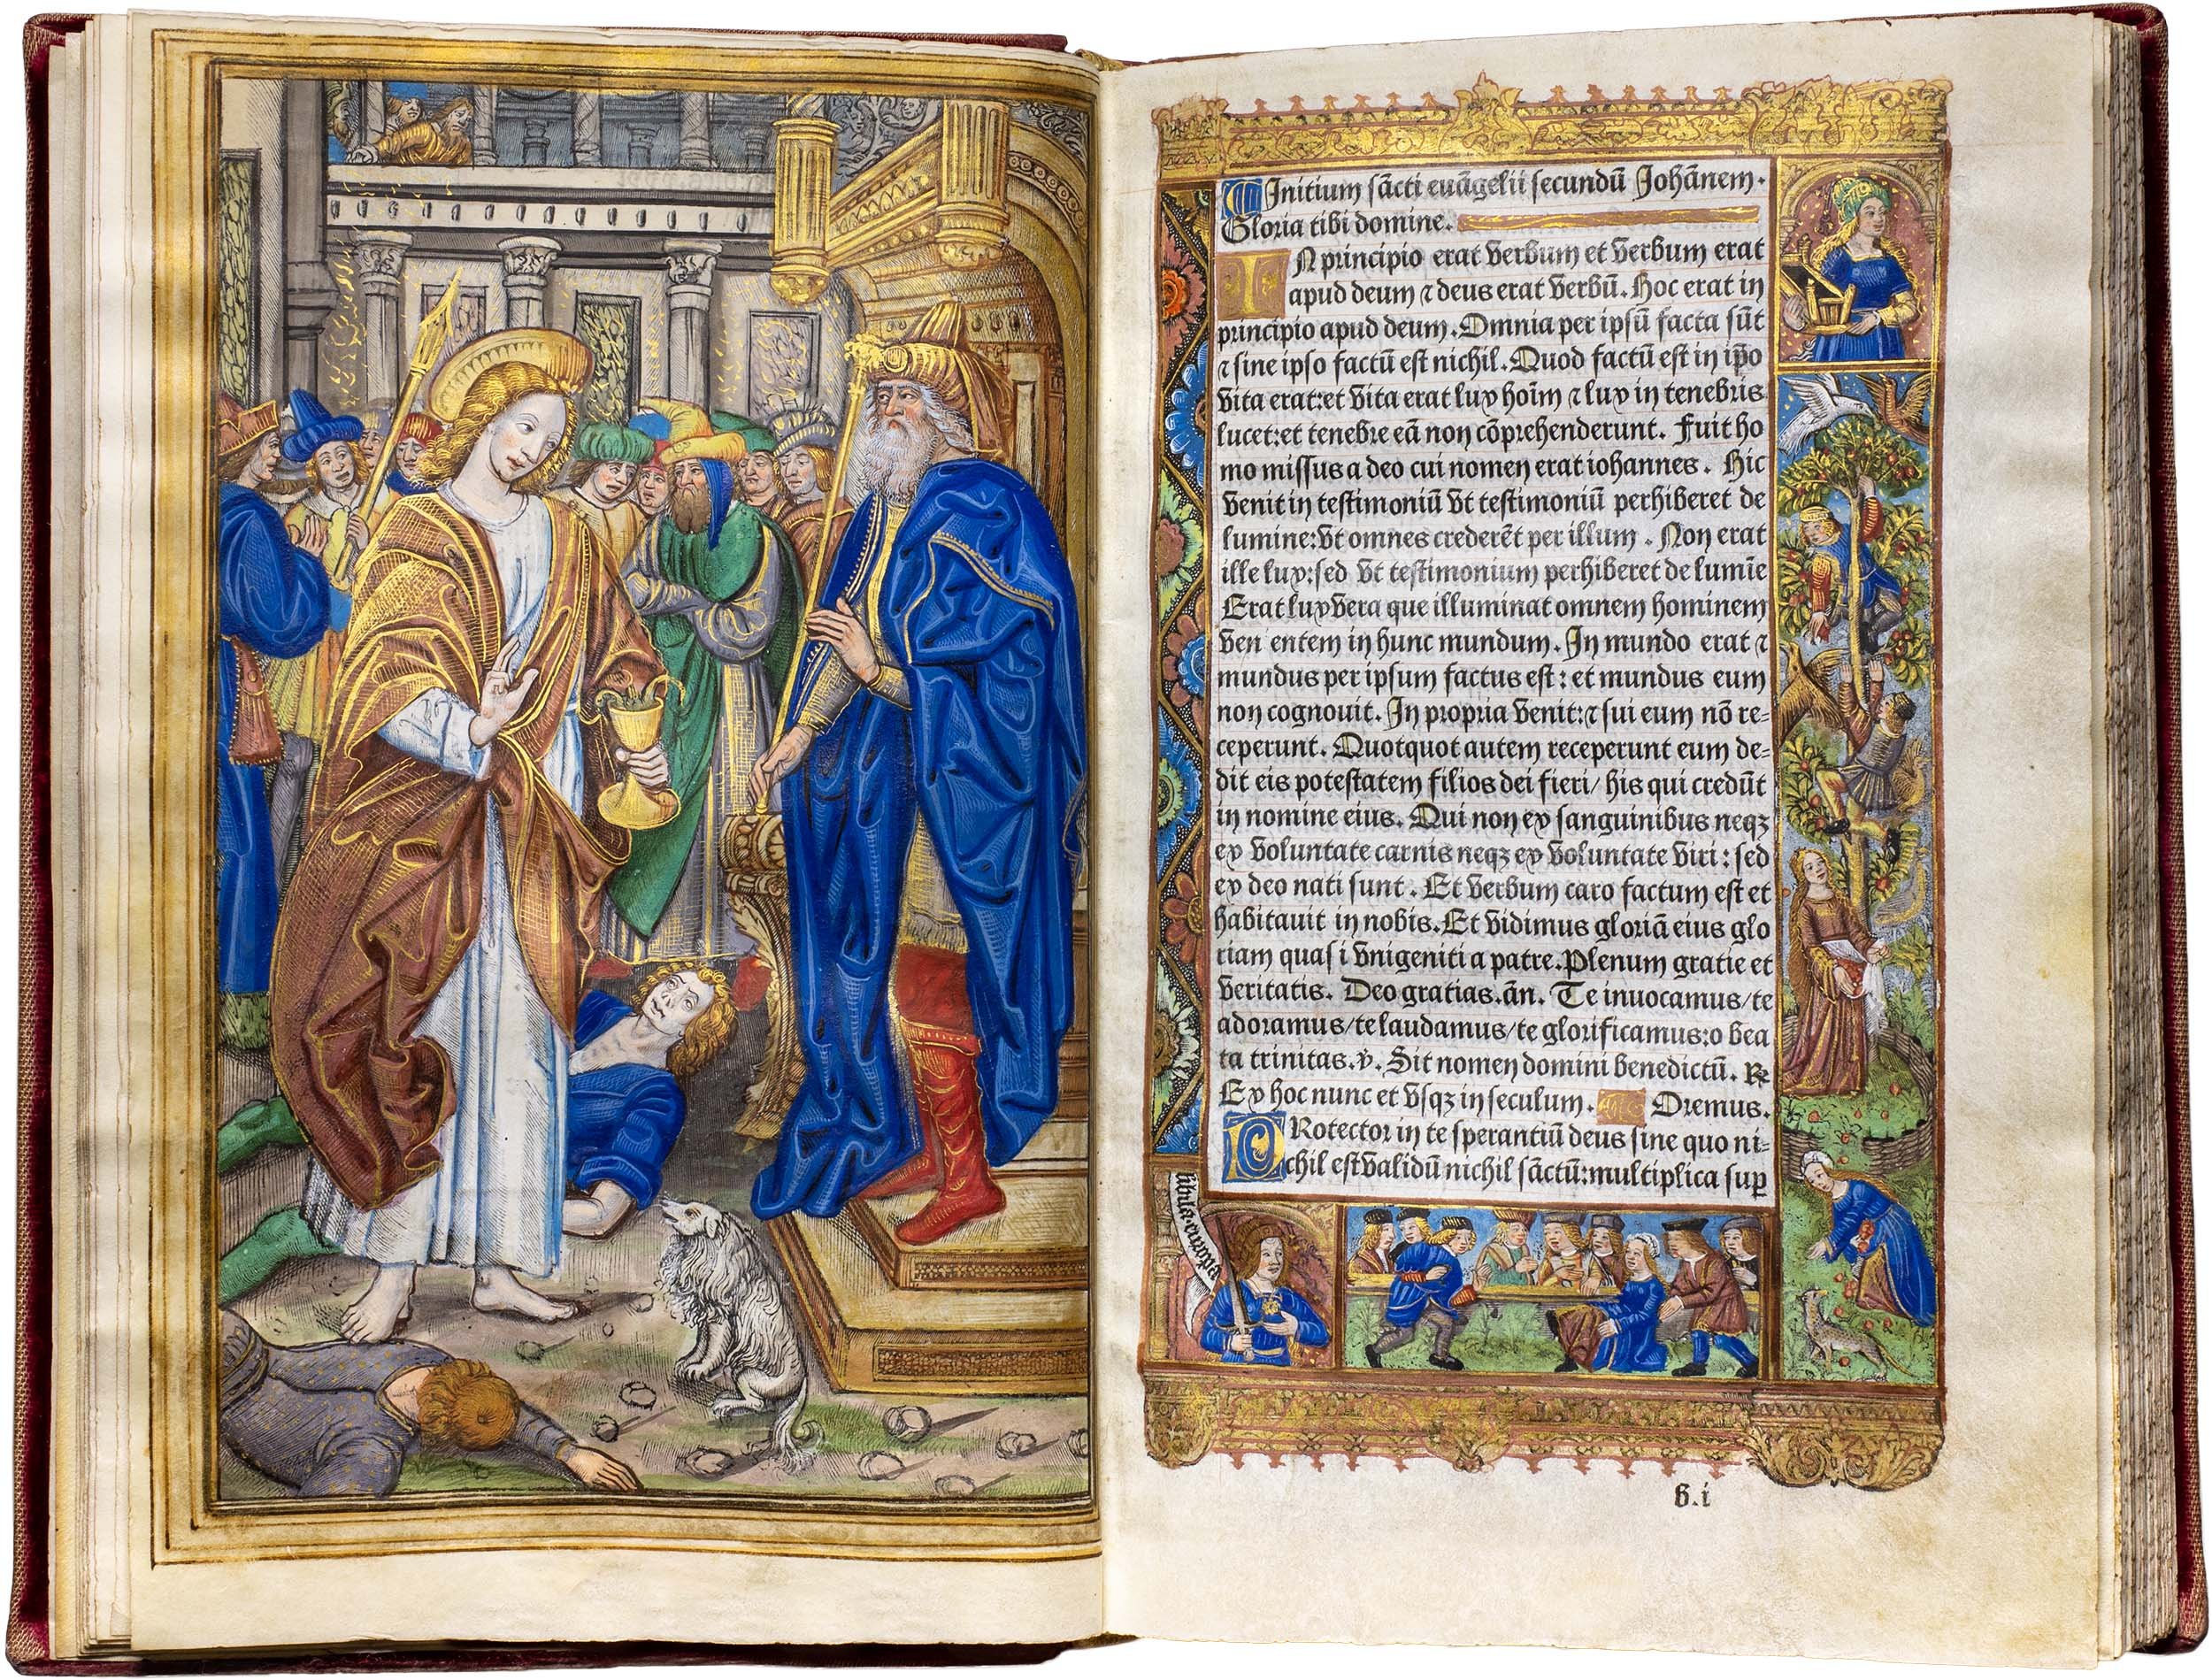 Initium sācti euāgelii secundū Johānem.
Gloria tibi domine.
IN principio erat verbum et verbum erat
apud deum ⁊ deus erat verbū. Hoc erat in
principio apud deum. Omnia per ipsū facta sūt
⁊ sine ipso factū est nichil. Quod factū est in ip̄o
vita erat: et vita erat lux hoīm ⁊ lux in tenebris
lucet: et tenebre eā non cōprehenderunt. Fuit ho
mo missus a deo cui nomen erat iohannes. Hic
venit in testimoniū vt testimoniū perhiberet de
lumine: vt omnes crederēt per illum. Non erat
ille lux: sed vt testimonium perhiberet de lumīe
Erat lux vera que illuminat omnem hominem
ven entem in hunc mundum. In mundo erat ⁊
mundus per ipsum factus est: et mundus eum
non cognouit. In propria venit: ⁊ sui eum nō re=
ceperunt. Quotquot autem receperunt eum de=
dit eis potestatem filios dei fieri/ his qui credūt
in nomine eius. Qui non ex sanguinibus neqꝫ
ex voluntate carnis neqꝫ ex voluntate viri: sed
ex deo nati sunt. Et verbum caro factum est et
habitauit in nobis. Et vidimus gloriā eius glo
riam quasi vnigeniti a patre. Plenum gratie et
veritatis. Deo gratias. ān. Te inuocamus/ te
adoramus/ te laudamus/ te glorificamus: o bea
ta trinitas. ℣. Sit nomen domini benedictū. ℟
Ex hoc nunc et vsqꝫ in seculum. Oremus.
PRotector in te sperantiū deus sine quo ni=
chil est validū nichil sāctū: multiplica suꝑ
sibila europea
b.i